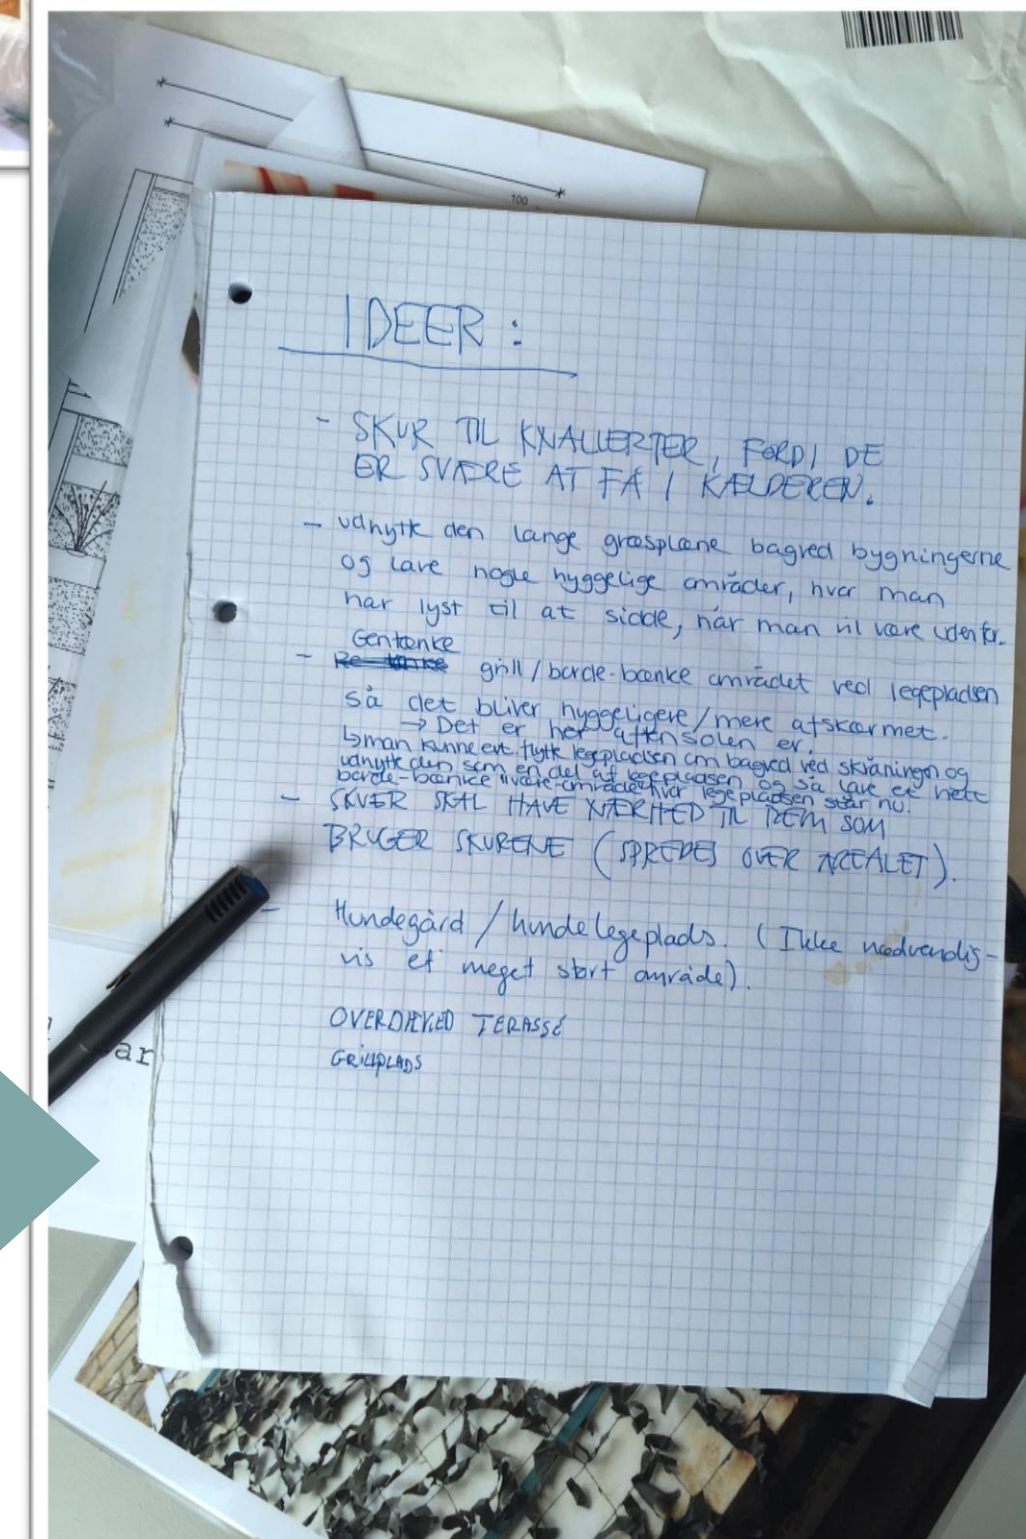 100
IDEER:
- SKUR TIL KNALLERTER, FORDI DE
ER SVÆRE AT FÅ I KÆLDEREN.
- udnytte den lange græsplæne bagved bygningerne
og lave nogle hyggelige områder, hvor man
har lyst til at sidde, når man vil være udenfor.
Gentænke
- grill/borde-bænke området ved legepladsen
så det bliver hyggeligere/mere afskærmet.
→ Det er her aftensolen er.
↳ man kunne evt. flytte legepladsen om bagved ved skråningen og
udnytte den som en del af legepladsen og så lave et nett
borde-bænke "være-område" hvor legepladsen står nu.
- SKUER SKAL HAVE NÆRHED TIL DEM SOM
BRUGER SKURENE (SPREDES OVER AREALET).
- Hundegård / hundelegeplads. (Ikke nødvendig-
vis et meget stort område).
OVERDÆKKED TERASSE
GRILLPLADS
ar